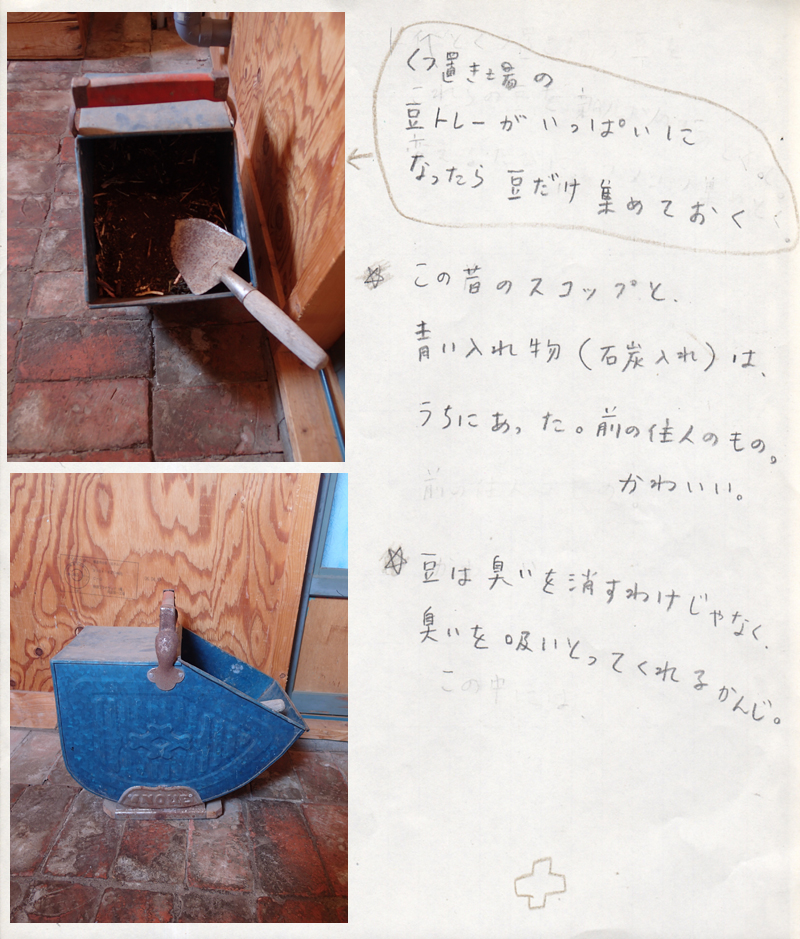 くつ置き場の
豆トレーがいっぱいに
なったら豆だけ集めておく
☆この昔のスコップと、
青い入れ物（石炭入れ）は、
うちにあった。前の住人のもの。
かわいい。
☆豆は臭いを消すわけじゃなく、
臭いを吸いとってくれるかんじ。
この中
INOUE